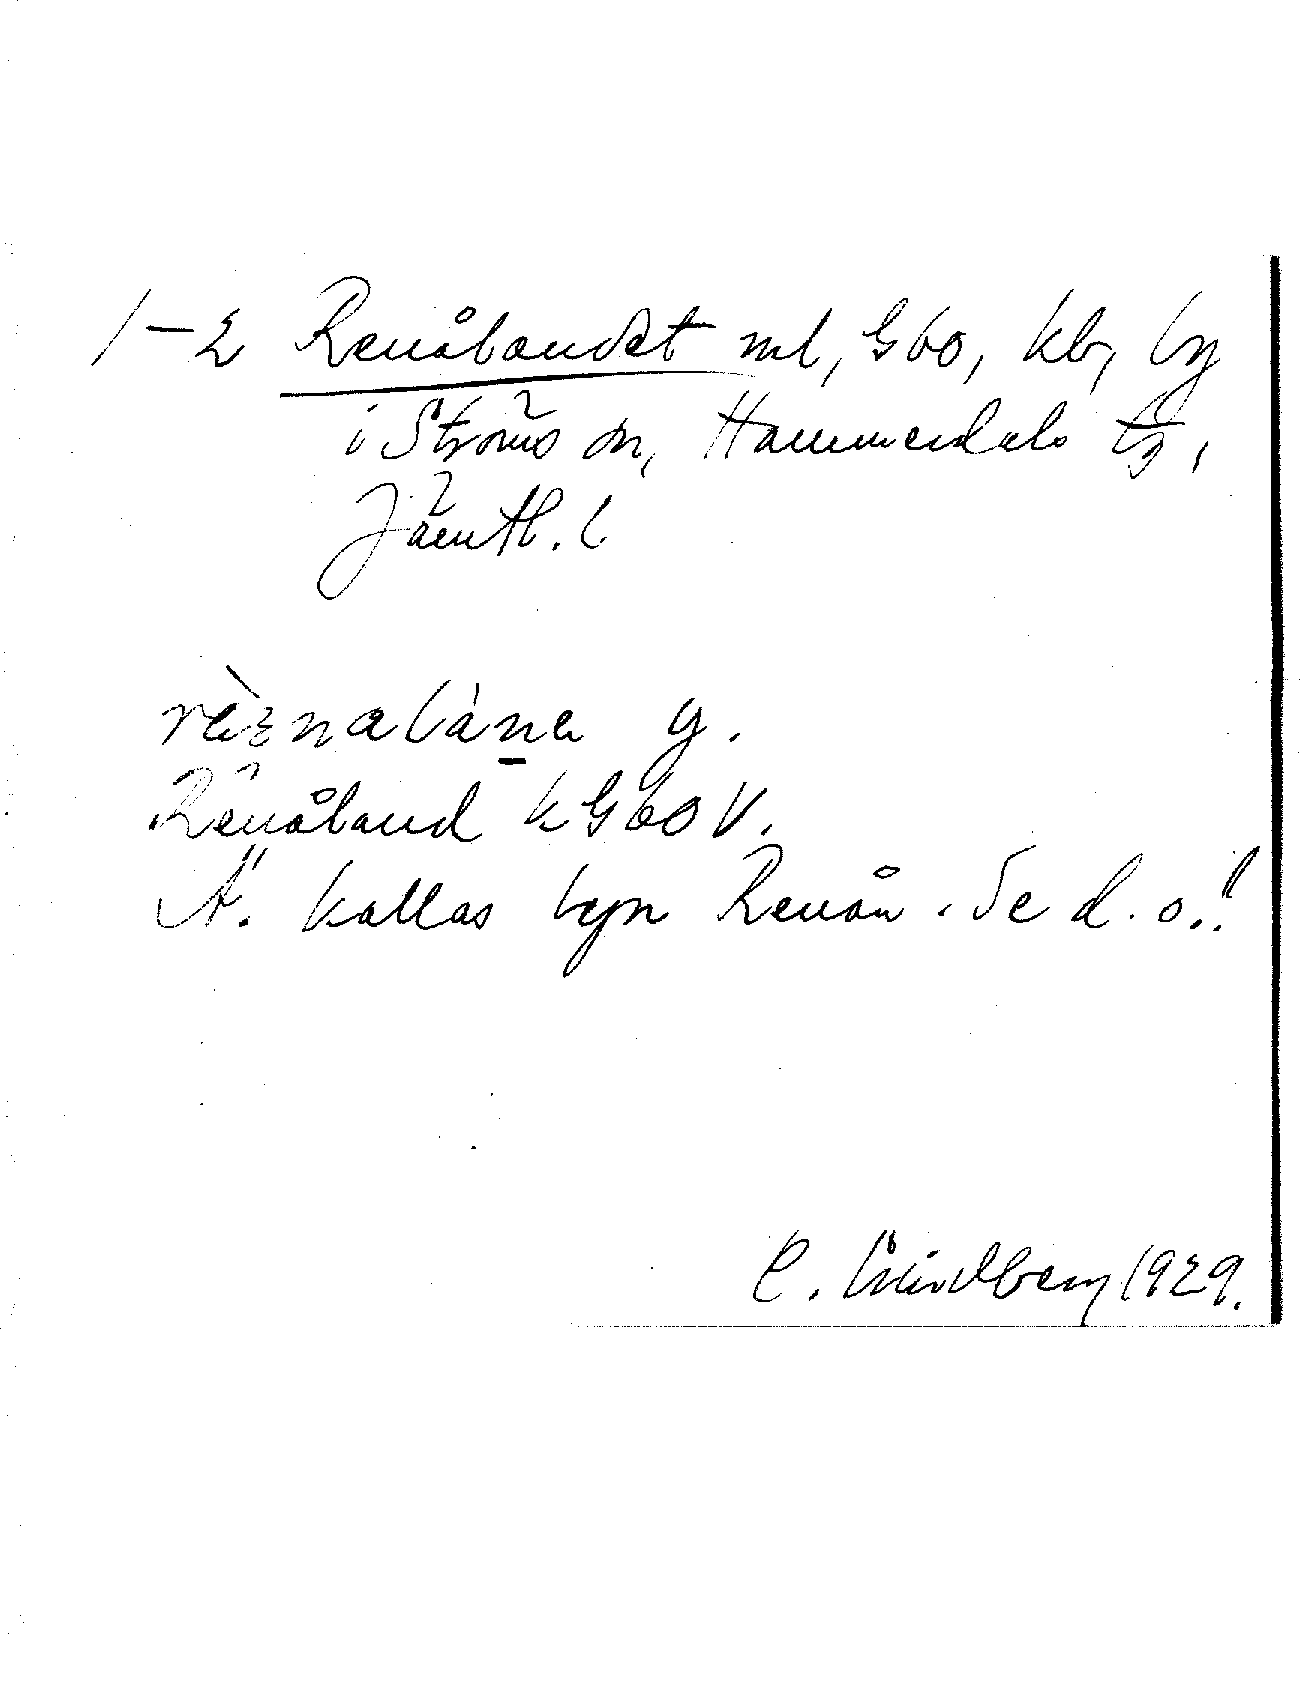 1–2 Renålandet ml, G60, kb, by
i Ströms sn, Hammerdals tg,
Jämtl. l
rènalána g.
Renåland k G60 V.
Ä. kallas byn Renån. Se d. o.!
C. Lindberg 1929.